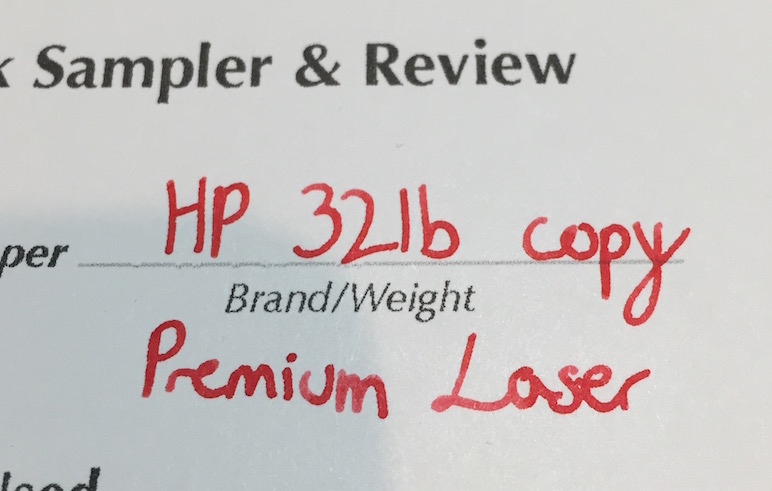 Sampler & Review
HP 32lb copy
Brand/Weight
Premium Laser